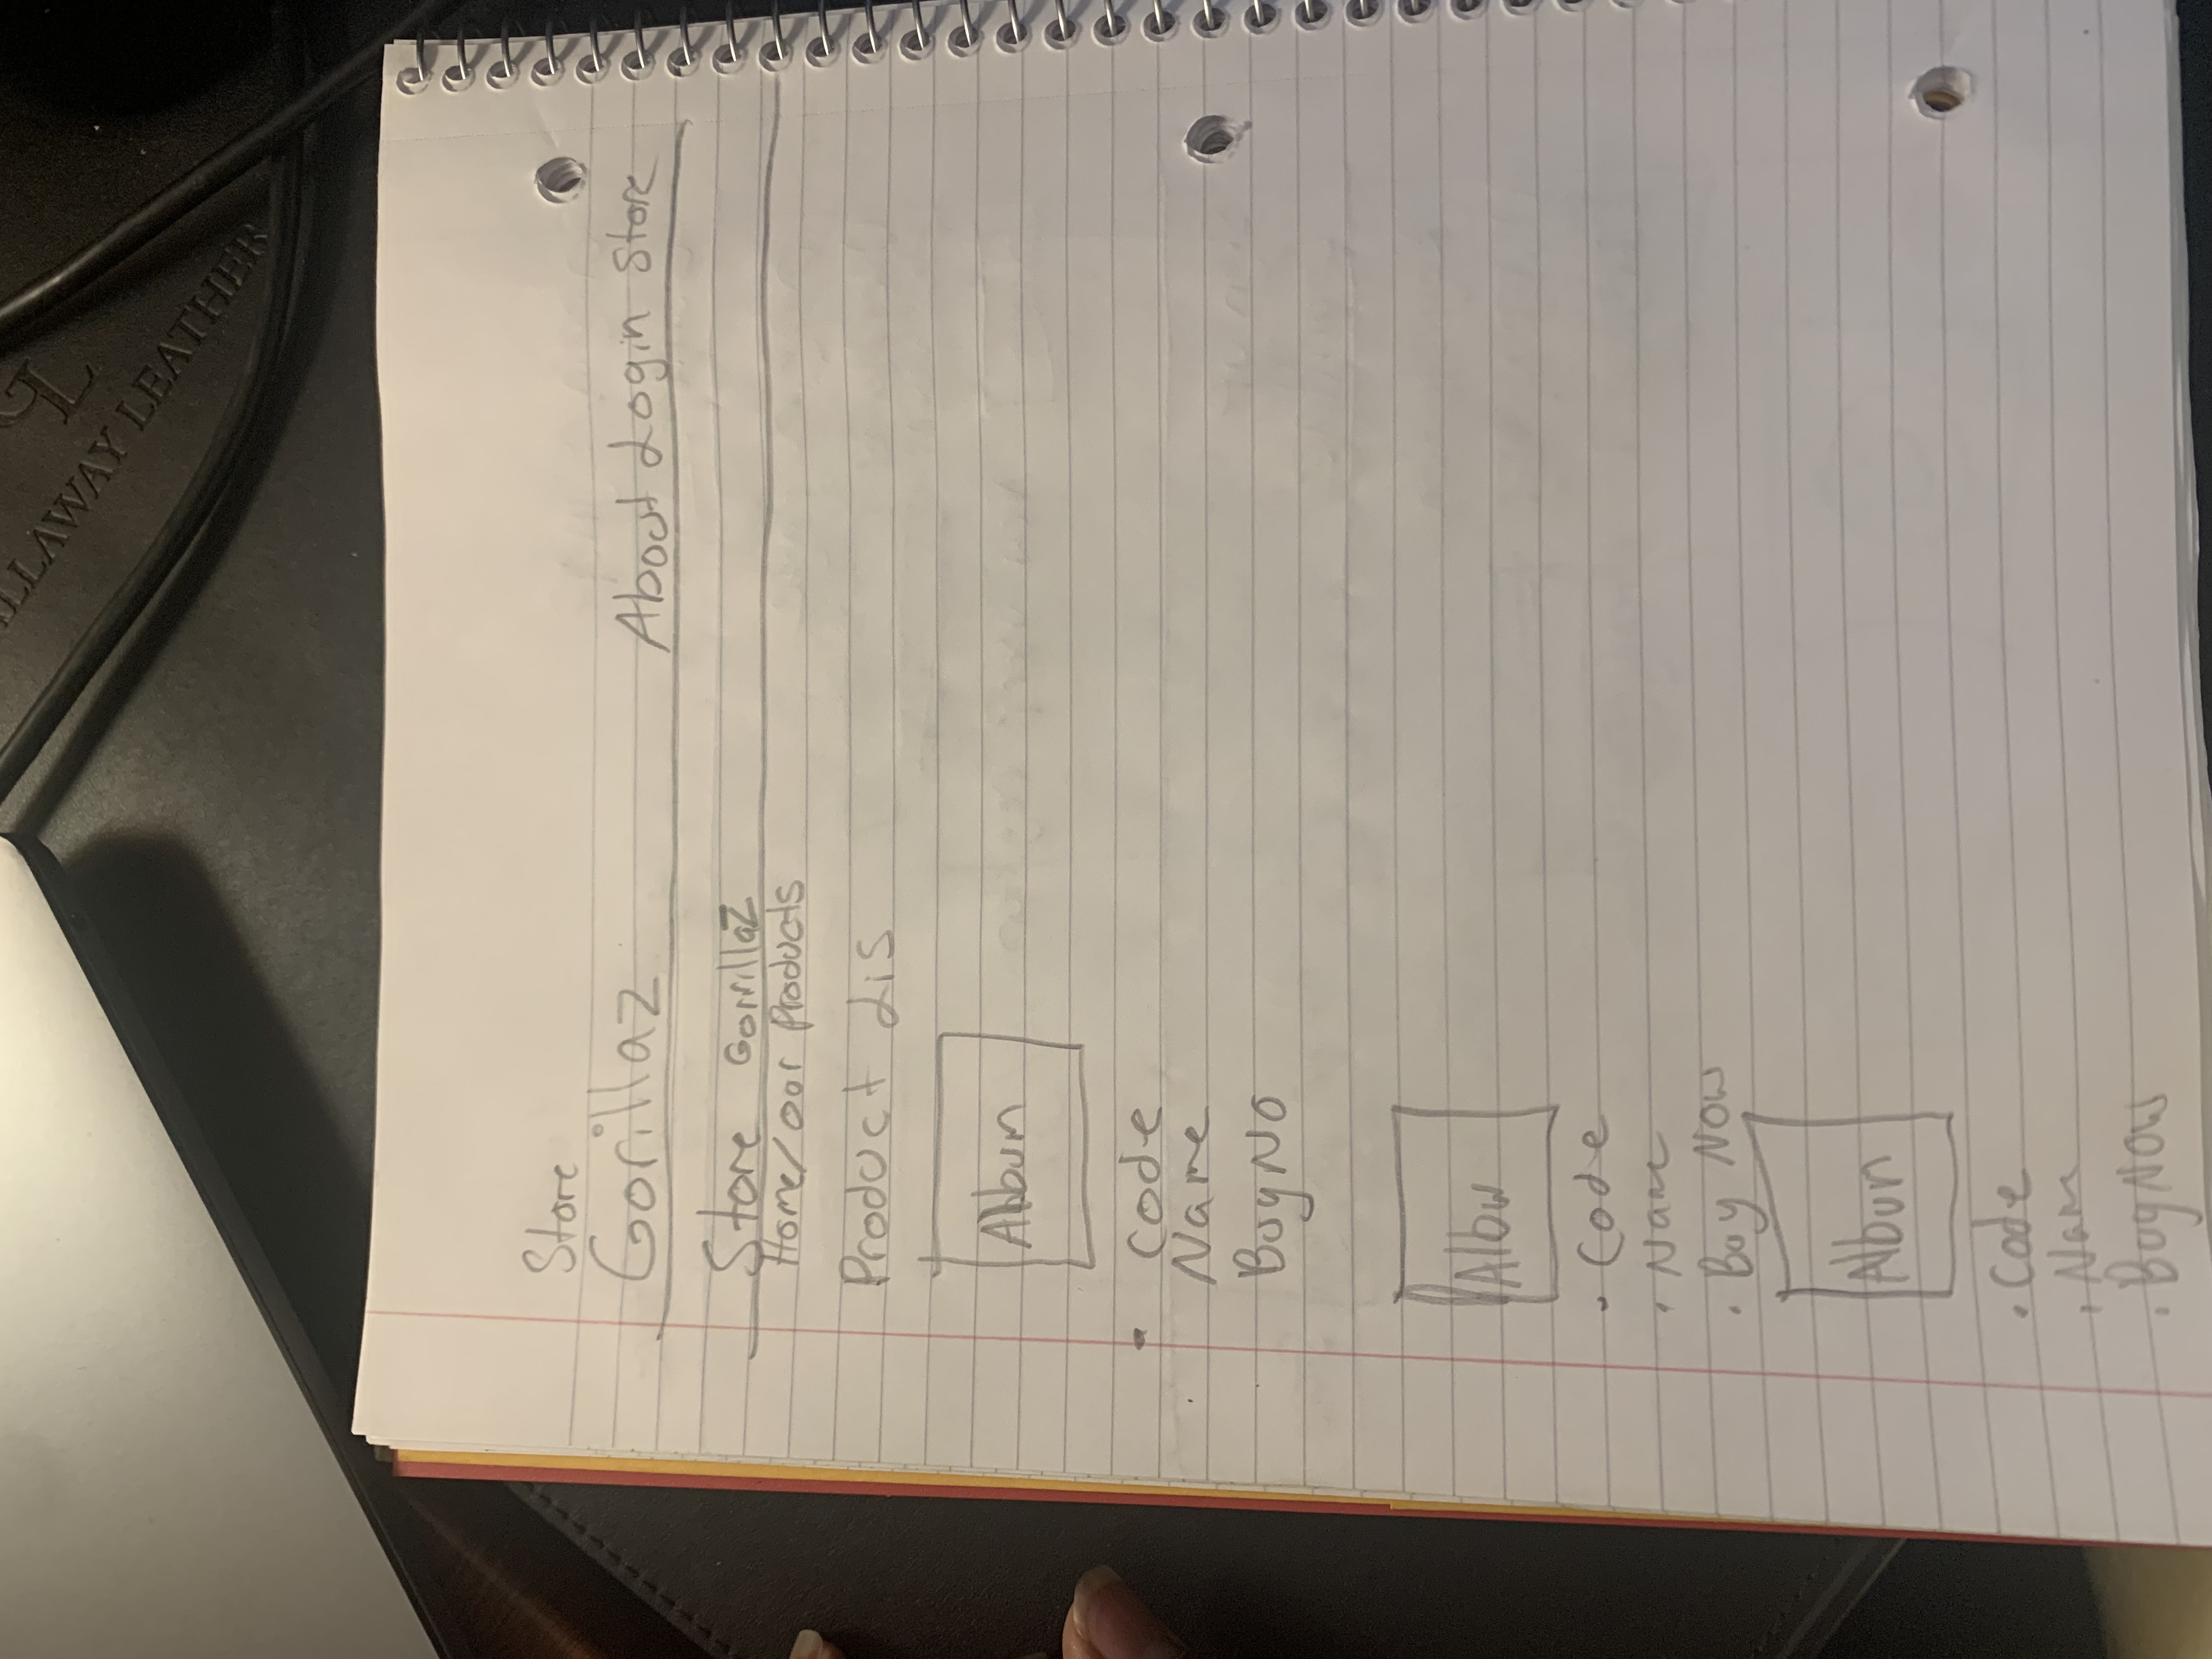 GL
LLAWAY LEATHER
Store
Gorillaz About Login Store
Store GorrillaZ
Home/our Products
Product Lis
Album
• Code
Name
BuyNO
Albu
• Code
• Name
• Buy NOW
Album
• Code
• Nam
• BuyNow